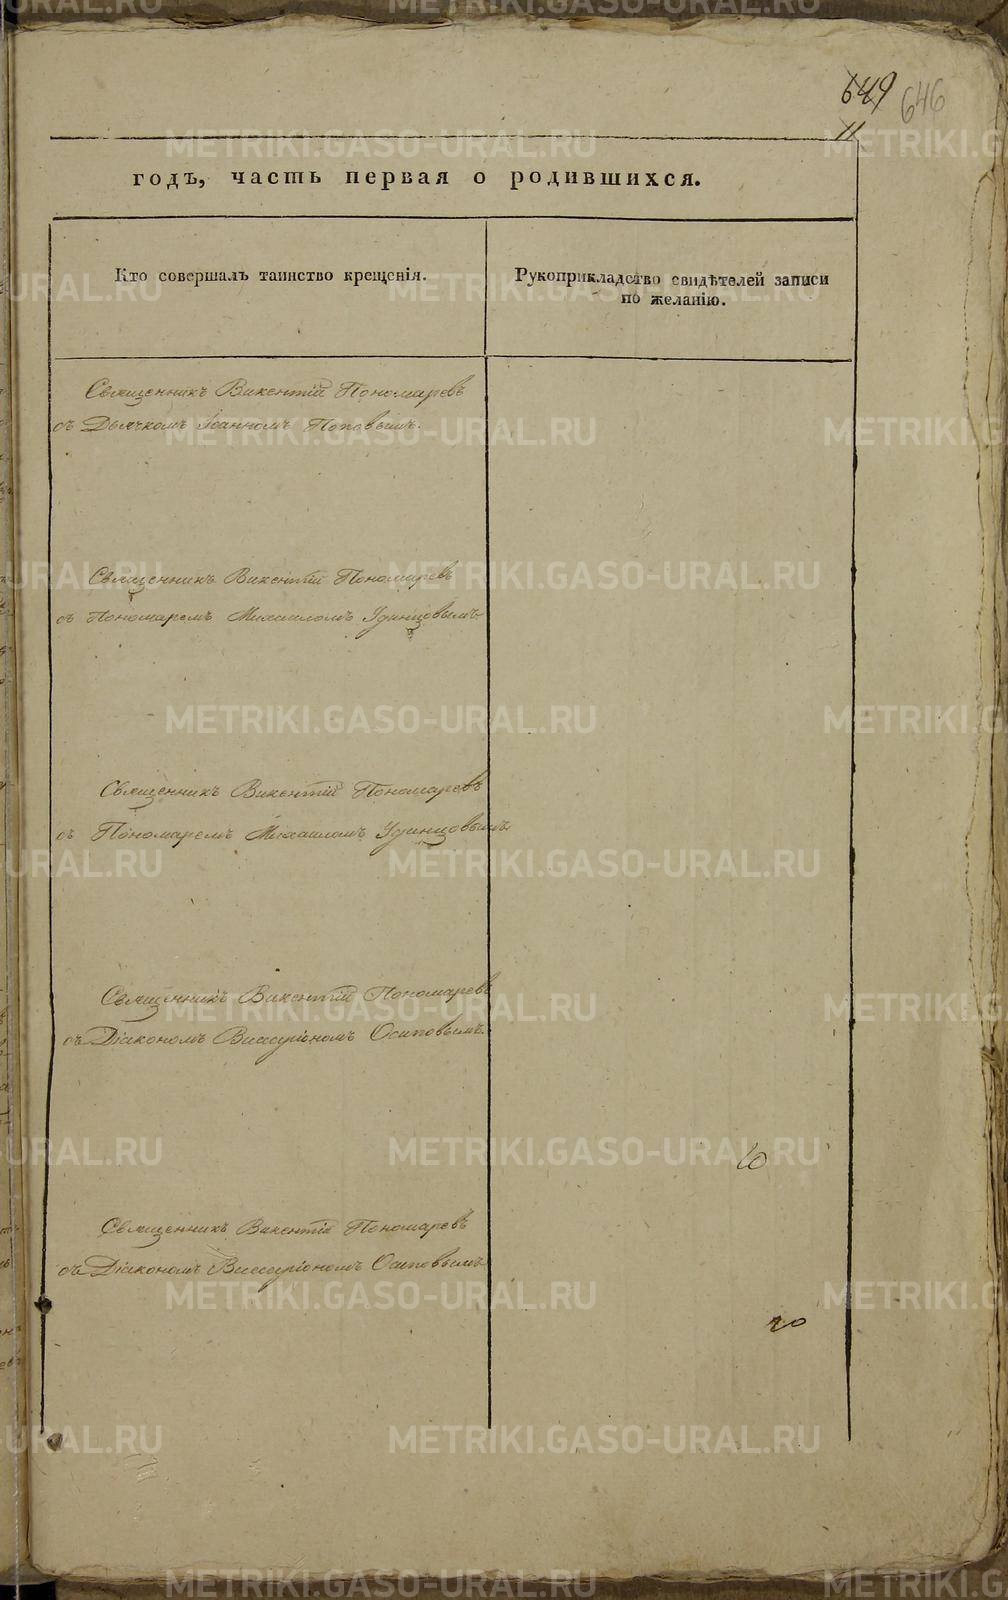 649 646
11
годъ, часть первая о родившихся.
Кто совершалъ таинство крещенія.
Рукоприкладство свидѣтелей записи
по желанію.
Священникъ Викентій Пономаревъ
съ Дьячкомъ Іоанномъ Поповымъ.
Священникъ Викентій Пономаревъ
съ Пономаремъ Михаиломъ Удинцовымъ
Священникъ Викентій Пономаревъ
съ Пономаремъ Михаиломъ Удинцовымъ
Священникъ Викентій Пономаревъ
съ Діакономъ Виссаріономъ Осиповымъ.
Священникъ Викентій Пономаревъ
съ Діакономъ Виссаріономъ Осиповымъ
METRIKI.GASO-URAL.RU